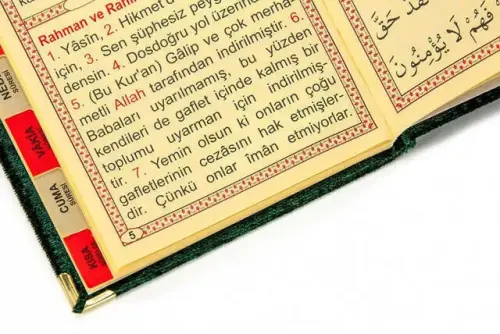 Rahman ve Rahî
1. Yâsîn, 2. Hikmet d
için, 3. Sen şüphesiz peyg
densin. 4. Dosdoğru yol üzerin
5. (Bu Kur'an) Gâlip ve çok merha-
metli Allah tarafından indirilmiştir. 6.
Babaları uyarılmamış, bu yüzden
kendileri de gaflet içinde kalmış bir
toplumu uyarman için indirilmiş-
tir. 7. Yemin olsun ki onların çoğu
gafletlerinin cezâsını hak etmişler-
dir. Çünkü onlar îman etmiyorlar.
5
حَقَّ
فَهُمْ لَا يُؤْمِنُونَ
SÛRESİ
VÂKIA
CUMA
SÛRESİ
KISA